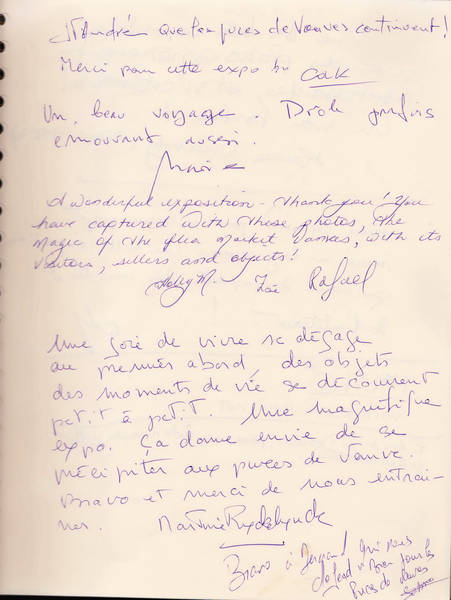 que les puces de Vanves continuent!
Merci pour cette expo
Un beau voyage. Drôle parfois
emouvant aussi.
A wonderful exposition - Thank you! You
have captured with these photos, the
magic of the flea market Vanves, with its
visitors, sellers and objects!
Zoë Rafael
Une joie de vivre se dégage
au premier abord, des objets
des moments de vie se découvrent
petit à petit. Une magnifique
expo. Ça donne envie de se
précipiter aux puces de Vanve.
Bravo et merci de nous entrai-
ner. Martine
Bravo à qui nous
défend si bien pour les
Puces de Vanves